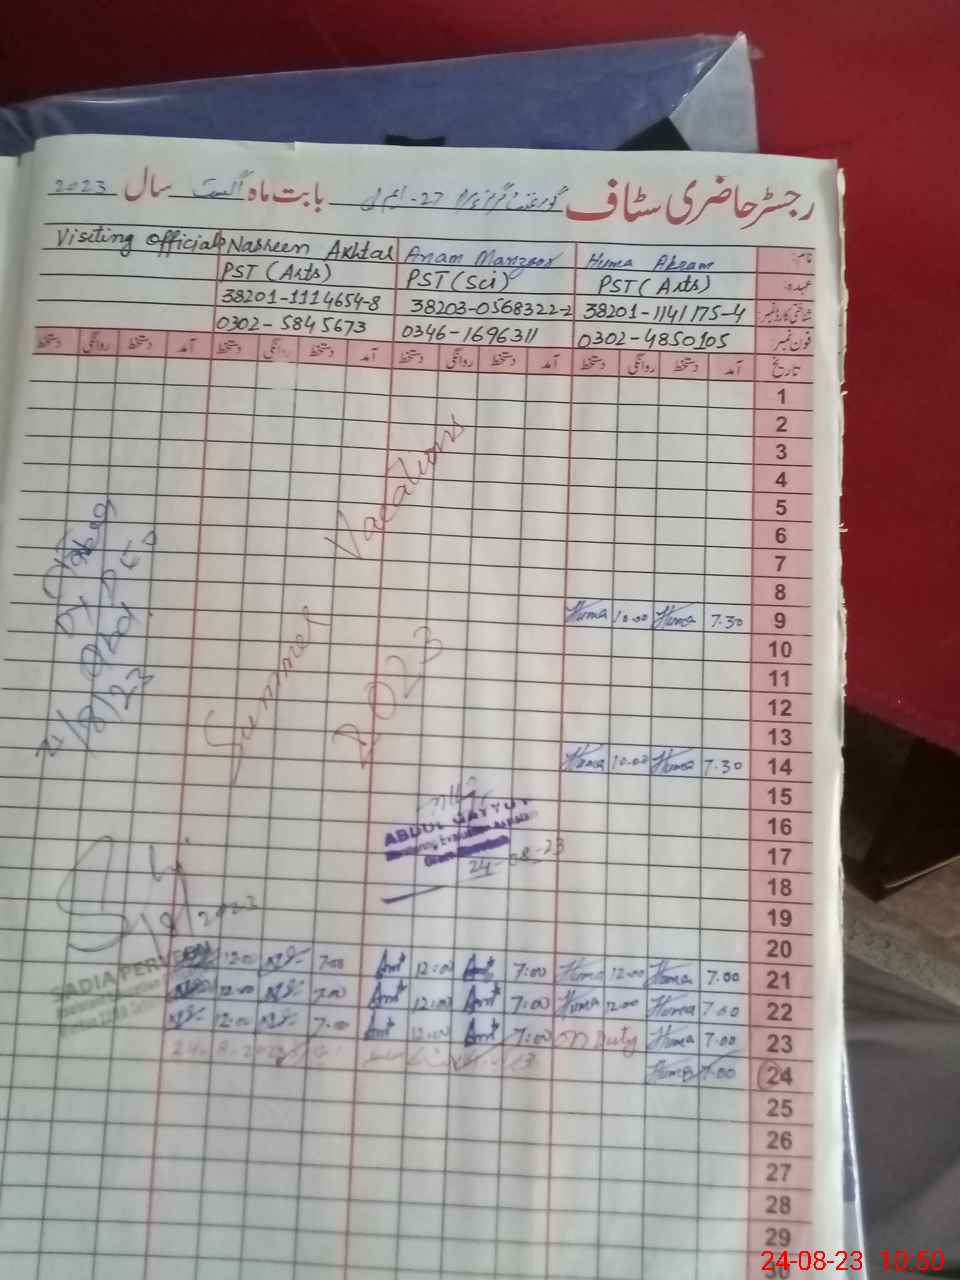 رجسٹر حاضری سٹاف گورنمنٹ گرلز 27-ایم ایل بابت ماہ اگست سال 2023
نام: Huma Akram Anam Manzoor Nasreen Akhtar Visiting Officials
عہدہ: PST (Arts) PST (Sci) PST (Arts)
شناختی کارڈ نمبر: 38201-1141175-4 38203-0568322-2 38201-1114654-8
فون نمبر: 0302-4850105 0346-1696311 0302-5845673
تاریخ آمد دستخط روانگی دستخط آمد دستخط روانگی دستخط آمد دستخط روانگی دستخط آمد دستخط روانگی دستخط
1
2
3
4
5
6
7
8
9 7.30 Huma 10.00 Huma
10
11
12
13
14 7.30 Huma 10.00 Huma
15
16
17
18
19
20
21 7.00 Huma 12.00 Huma 7:00 12:00 7.00 12.00
22 7.00 Huma 12.00 Huma 7:00 12:00 7.00 12.00
23 7.00 Huma ON Duty 7:00 12:00 7.00 12.00
24 7.00 Huma
25
26
27
28
29
30
Summer Vacations
2023
DY DEO
21/8/23
ABDUL QAYYUM
24-08-23
SADIA PERVEEN
24-8-2023
24-08-23 10.50